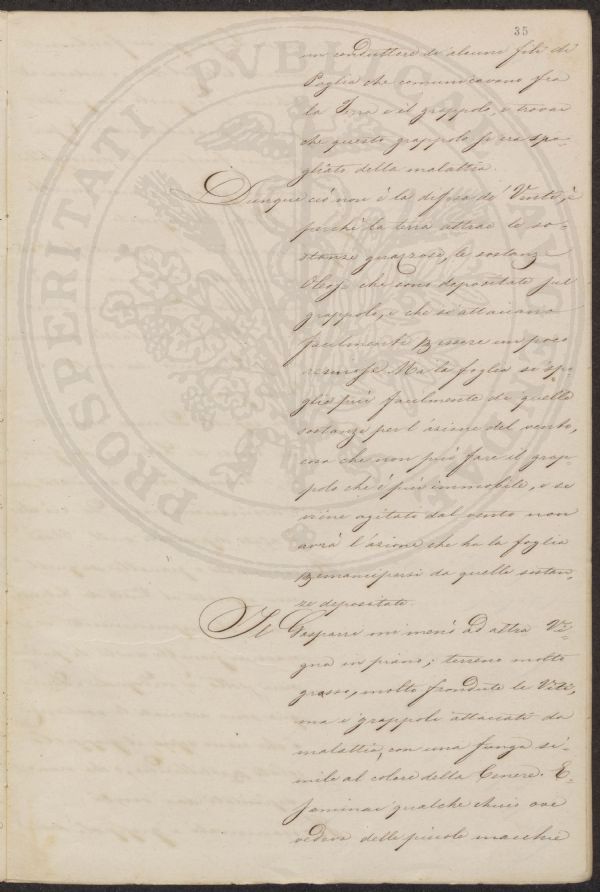 35
un conduttore di alcuni fili di
Paglia che comunicavano fra
la Terra e il grappolo, e trovai
che questo grappolo si era spo-
gliato della malattia.
Dunque ciò non è la difesa de' Venti, è
perchè la terra attrae le so-
stanze gazzose, le sostanze
Oleose che sono depositate sul
grappolo, e che si attaccano
facilmente p essere un poco
resinose. Ma la foglia si spo-
glia più facilmente di quelle
sostanze per l'azione del vento,
cosa che non può fare il grap-
polo che è più immobile, e se
viene agitato dal vento non
avrà l'azione che ha la foglia
p emanciparsi da quelle sostan-
ze depositate.
Il Gasparri mi menò ad altra Vi-
gna in piano; terreno molto
grasso, molto frondute le Viti,
ma i grappoli attaccati da
malattia, con una funga si-
mile al colore della Cenere. E-
saminai qualche chicco ove
vedeva delle piccole macchie
PROSPERITATI PVBLICAE